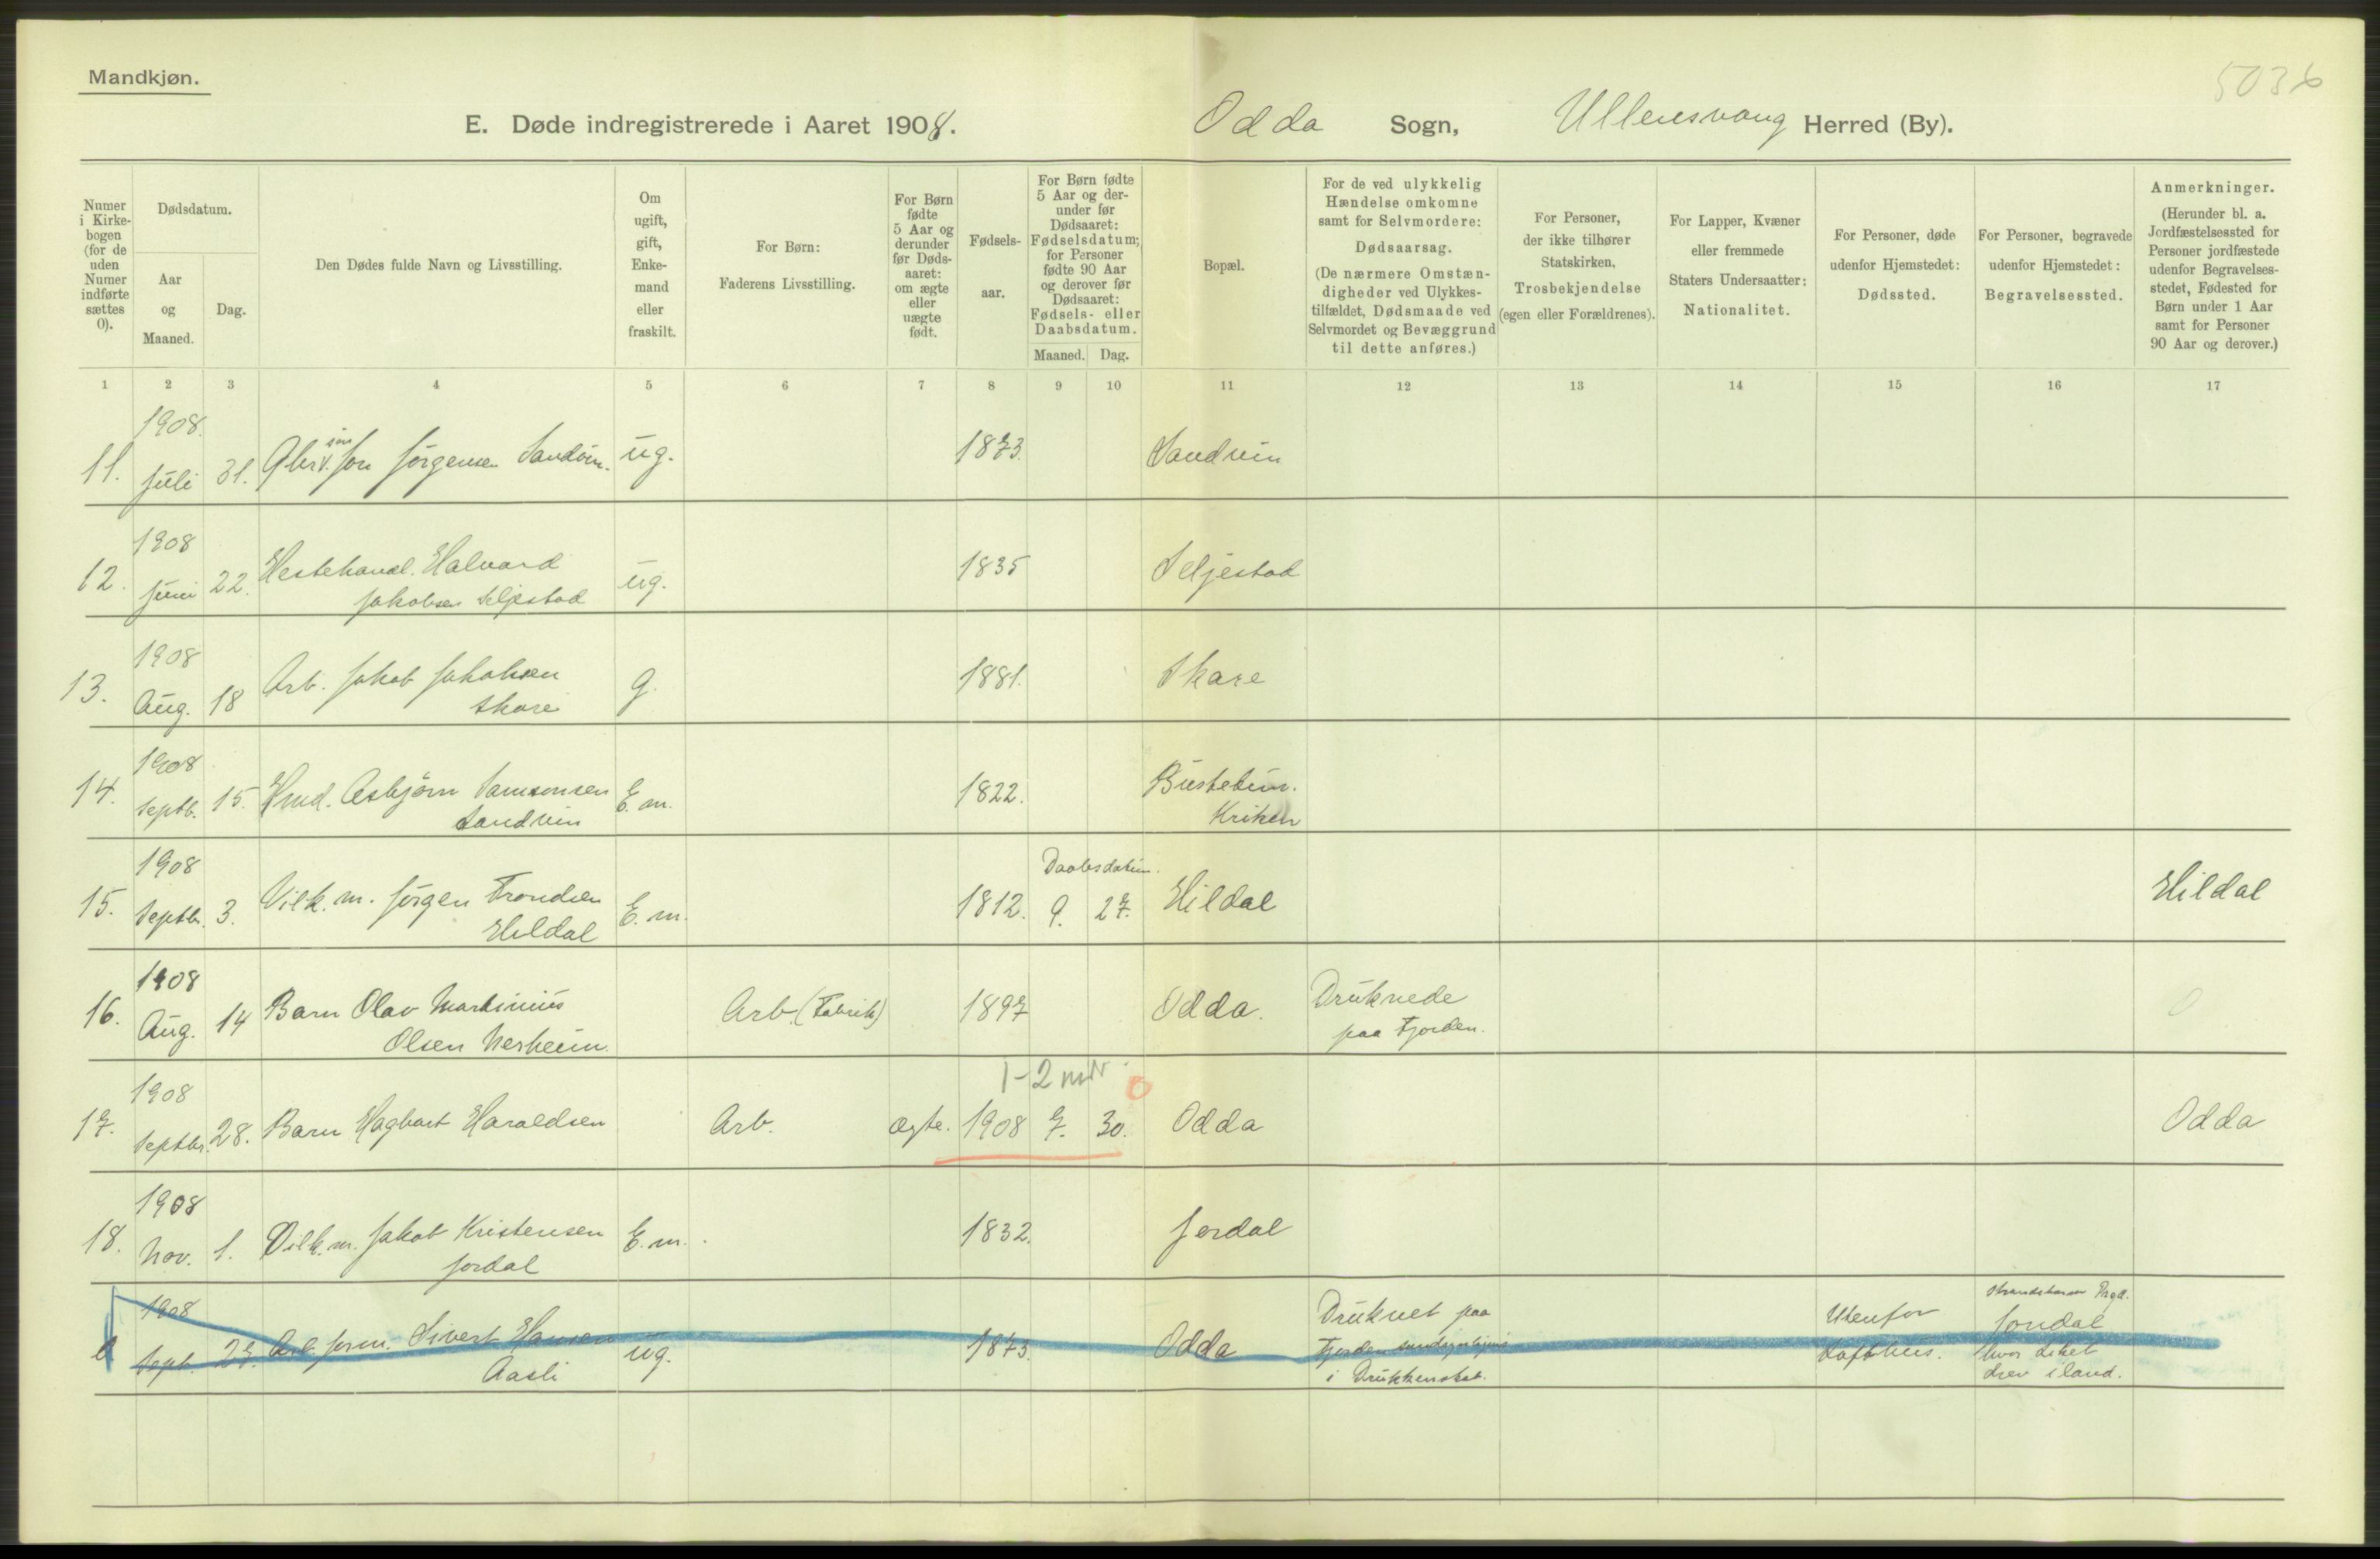 Mandkjøn.
5036
E. Døde indregistrerede i Aaret 1908. Odda Sogn, Ullensvang Herred (By).
Numer i Kirkebogen (for de uden Numer indførte sættes 0).
Dødsdatum.
Aar og Maaned.
Dag.
Den Dødes fulde Navn og Livsstilling.
Om ugift, gift, Enkemand eller fraskilt.
For Børn: Faderens Livsstilling.
For Børn fødte 5 Aar og derunder før Dødsaaret: om ægte eller uægte født.
Fødselsaar.
For Børn fødte 5 Aar og derunder før Dødsaaret: Fødselsdatum; for Personer fødte 90 Aar og derover før Dødsaaret: Fødsels- eller Daabsdatum.
Maaned. Dag.
Bopæl.
For de ved ulykkelig Hændelse omkomne samt for Selvmordere: Dødsaarsag. (De nærmere Omstændigheder ved Ulykkestilfældet, Dødsmaade ved Selvmordet og Bevæggrund til dette anføres.)
For Personer, der ikke tilhører Statskirken, Trosbekjendelse (egen eller Forældrenes).
For Lapper, Kvæner eller fremmede Staters Undersaatter: Nationalitet.
For Personer, døde udenfor Hjemstedet: Dødssted.
For Personer, begravede udenfor Hjemstedet: Begravelsessted.
Anmerkninger. (Herunder bl. a. Jordfæstelsessted for Personer jordfæstede udenfor Begravelsesstedet, Fødested for Børn under 1 Aar samt for Personer 90 Aar og derover.)
1 2 3 4 5 6 7 8 9 10 11 12 13 14 15 16 17
1908.
11. Juli 31. Jørgensen Sandvin. ug. 1873. Sandvin
1908
12. Juni 22. Hestehandl. Halvard ug. 1835 Seljestad
Jakobsen Seljestad
1908
13. Aug. 18 Arb. Jakob Jakobsen g. 1881. Skare
Skare
1908
14. Septb. 15. Asbjørn Samsonsen E.m. 1822. Bustetun.
Sandvin Kriken
1908 Daabsdatum.
15. Septbr. 3. Vilk.m. Jørgen Trondsen E.m. 1812. 9. 27. Hildal Hildal
Hildal
1908
16. Aug. 14 Barn Olav Martinius Arb. (Fabrik) 1897 Odda. Druknede
Olsen Nesheim. paa Fjorden.
1908 1-2 0
17. Septbr. 28. Barn Hagbart Haraldsen Arb. ægte. 1908 7. 30. Odda Odda
1908
18. Nov. 1. Vilk.m. Jakob Kristensen E.m. 1832. Jordal
Jordal
1908 Druknet paa Utenfor Strandebarm Prgd.
0 Sept. 27. Arb. form. Sivert Hansen ug. 1873. Odda Fjorden Lofthus. Jondal
Aasli i Drukkenskab. hvor Liket
drev iland.